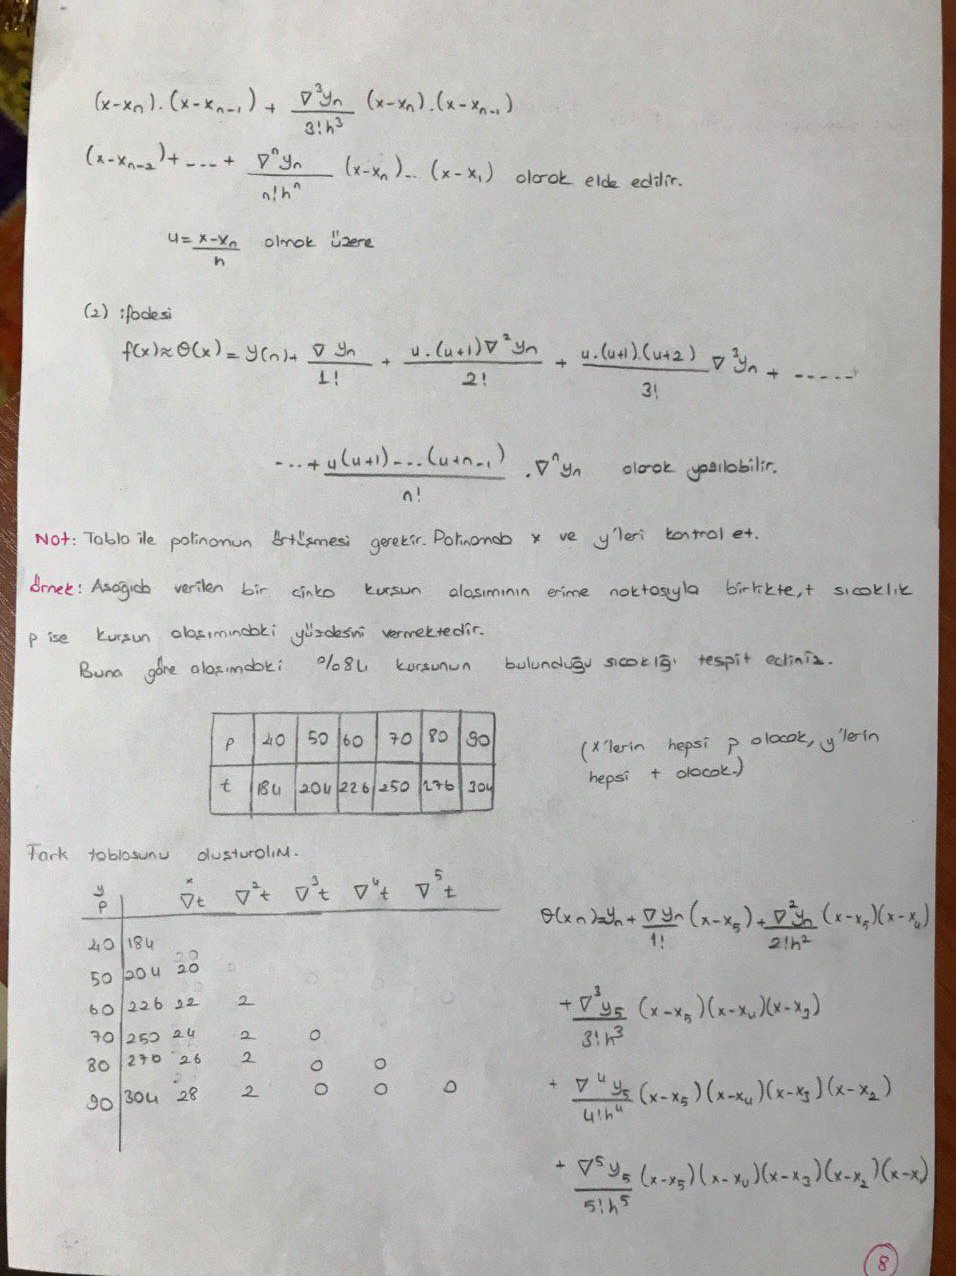 (x-xₙ).(x-xₙ₋₁) + ∇³yₙ/3!h³ (x-xₙ).(x-xₙ₋₁)
(x-xₙ₋₂)+ ---- + ∇ⁿyₙ/n!hⁿ (x-xₙ)-- (x-x₁) olarak elde edilir.
u = x-xₙ/h olmak üzere
(2) ifadesi
f(x)≈Θ(x) = y(n)+ ∇yₙ/1! + u.(u+1)∇²yₙ/2! + u.(u+1).(u+2)/3! ∇³yₙ + ------
--.+ u(u+1)--..(u+n-1)/n! .∇ⁿyₙ olarak yazılabilir.
Not: Tablo ile polinomun örtüşmesi gerekir. Polinomda x ve y'leri kontrol et.
Örnek: Aşağıda verilen bir çinko kurşun alaşımının erime noktasıyla birlikte, t sıcaklık
p ise kurşun alaşımındaki yüzdesini vermektedir.
Buna göre alaşımdaki %84 kurşunun bulunduğu sıcaklığı tespit ediniz.
p 40 50 60 70 80 90
t 184 204 226 250 276 304
(x'lerin hepsi p olacak, y'lerin
hepsi t olacak.)
Fark tablosunu oluşturalım.
y
p ∇t ∇²t ∇³t ∇⁴t ∇⁵t
40 184
50 204 20
60 226 22 2
70 250 24 2 0
80 270 26 2 0 0
90 304 28 2 0 0 0
Θ(xn)=yₙ + ∇yₙ/1! (x-x₅)+ ∇²yₙ/2!h² (x-x₅)(x-x₄)
+ ∇³y₅/3!h³ (x-x₅)(x-x₄)(x-x₃)
+ ∇⁴y₅/4!h⁴ (x-x₅)(x-x₄)(x-x₃)(x-x₂)
+ ∇⁵y₅/5!h⁵ (x-x₅)(x-x₄)(x-x₃)(x-x₂)(x-x₁)
8